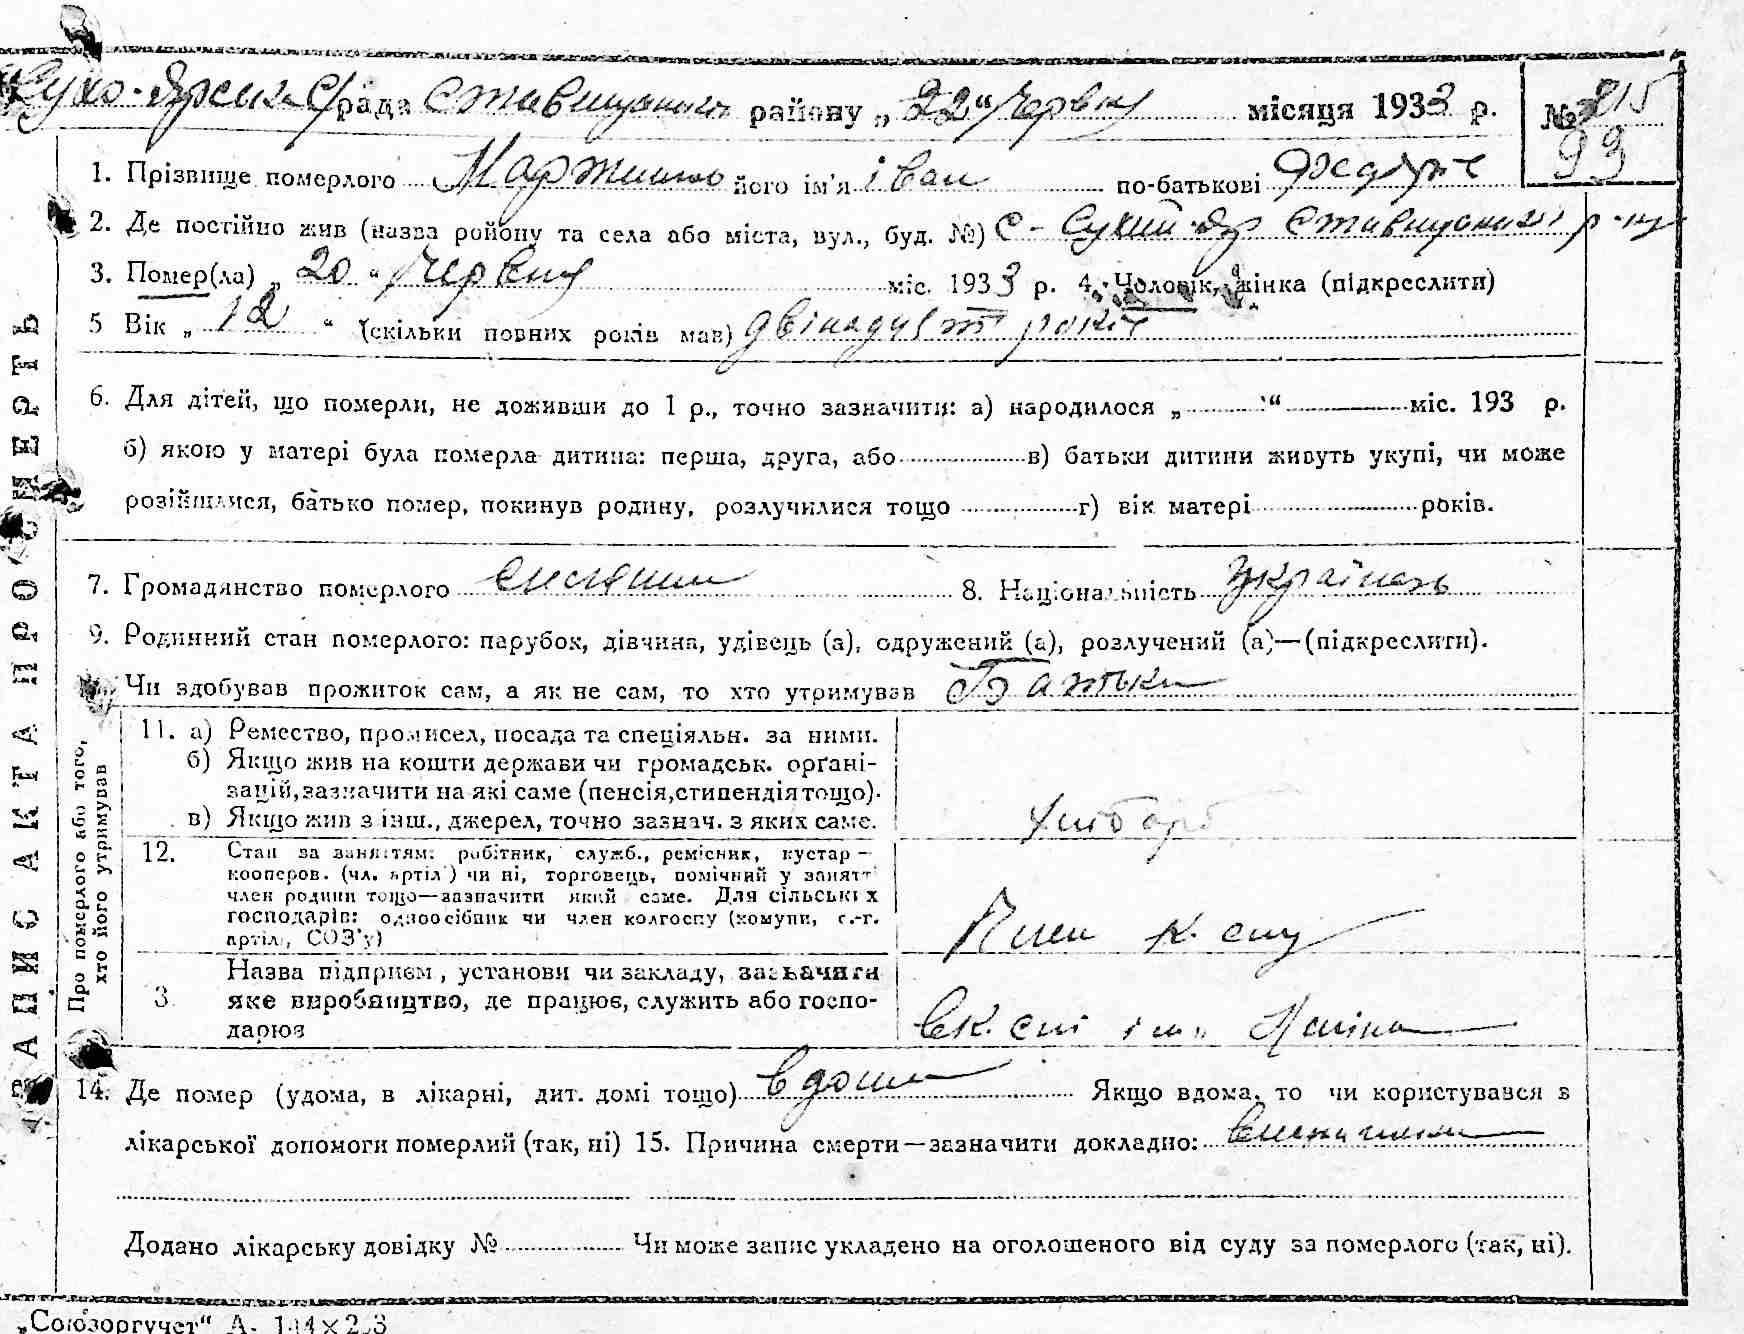 Сухо-Ярська С/рада Ставищанського району „22“ червня місяця 1933 р. № 93
1. Прізвище померлого його ім'я іван по-батькові
2. Де постійно жив (назва району та села або міста, вул., буд. №) С-Сухий-Яр Ставищанський р-ну
3. Помер(ла) „20“ червня міс. 1933 р. 4. Чоловік, жінка (підкреслити)
5 Вік „12“ (скільки повних років мав) двінадцять років
6. Для дітей, що померли, не доживши до 1 р., точно зазначити: а) народилося „ “ міс. 193 р.
б) якою у матері була померла дитина: перша, друга, або в) батьки дитини живуть укупі, чи може
розійшлися, батько помер, покинув родину, розлучилися тощо г) вік матері років.
7. Громадянство померлого 8. Національність українець
9. Родинний стан померлого: парубок, дівчина, удівець (а), одружений (а), розлучений (а)—(підкреслити).
Чи здобував прожиток сам, а як не сам, то хто утримував Батьки
ЗАПИС АКТА ПРО СМЕРТЬ
Про померлого або того,
хто його утримував
11. а) Ремество, промисел, посада та спеціяльн. за ними.
б) Якщо жив на кошти держави чи громадськ. орґані-
зацій, зазначити на які саме (пенсія, стипендія тощо).
в) Якщо жив з інш., джерел, точно зазнач. з яких саме.
Хлібороб
12. Стан за заняттям: робітник, служб., ремісник, кустар—
кооперов. (чл. артілі) чи ні, торговець, помічний у занятт
член родини тощо—зазначити який саме. Для сільських
господарів: одноосібник чи член колгоспу (комуни, с.-г.
артілі, СОЗ'у)
Член к. спу
3. Назва підприєм, установи чи закладу, зазначити
яке виробництво, де працює, служить або госпо-
дарює
В к. спі ім. Леніна
14. Де помер (удома, в лікарні, дит. домі тощо) вдома Якщо вдома, то чи користувався з
лікарської допомоги померлий (так, ні) 15. Причина смерти—зазначити докладно:
Додано лікарську довідку № Чи може запис укладено на оголошеного від суду за померлого (так, ні).
„Союзоргучет“ А-